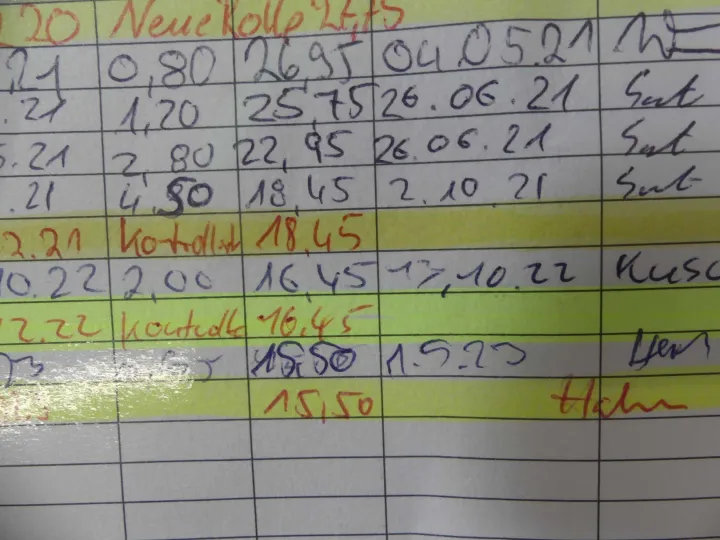 .20 Neue Rolle 27,75
.21 0,80 26,95 04.05.21
.21 1,20 25,75 26.06.21
.21 2,80 22,95 26.06.21
.21 4,50 18,45 2.10.21
2.21 Kontrolle 18,45
10.22 2,00 16,45 13.10.22
12.22 Kontrolle 16,45
15,50 1.5.23
15,50